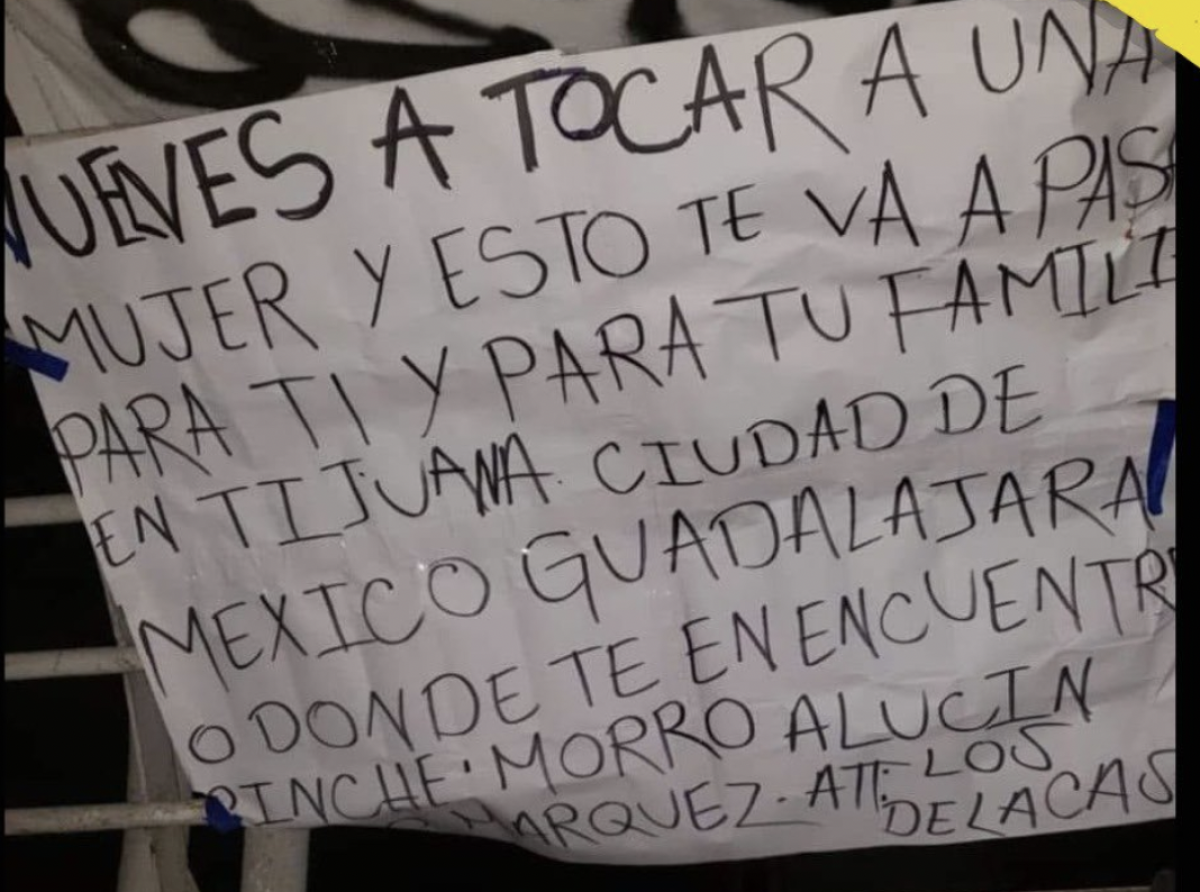 VUELVES A TOCAR A UNA
MUJER Y ESTO TE VA A PASA
PARA TI Y PARA TU FAMILI
EN TIJUANA. CIUDAD DE
MEXICO GUADALAJARA
O DONDE TE EN ENCUENTR
PINCHE. MORRO ALUCIN
ARQUEZ. ATT: LOS
DE LA CAS